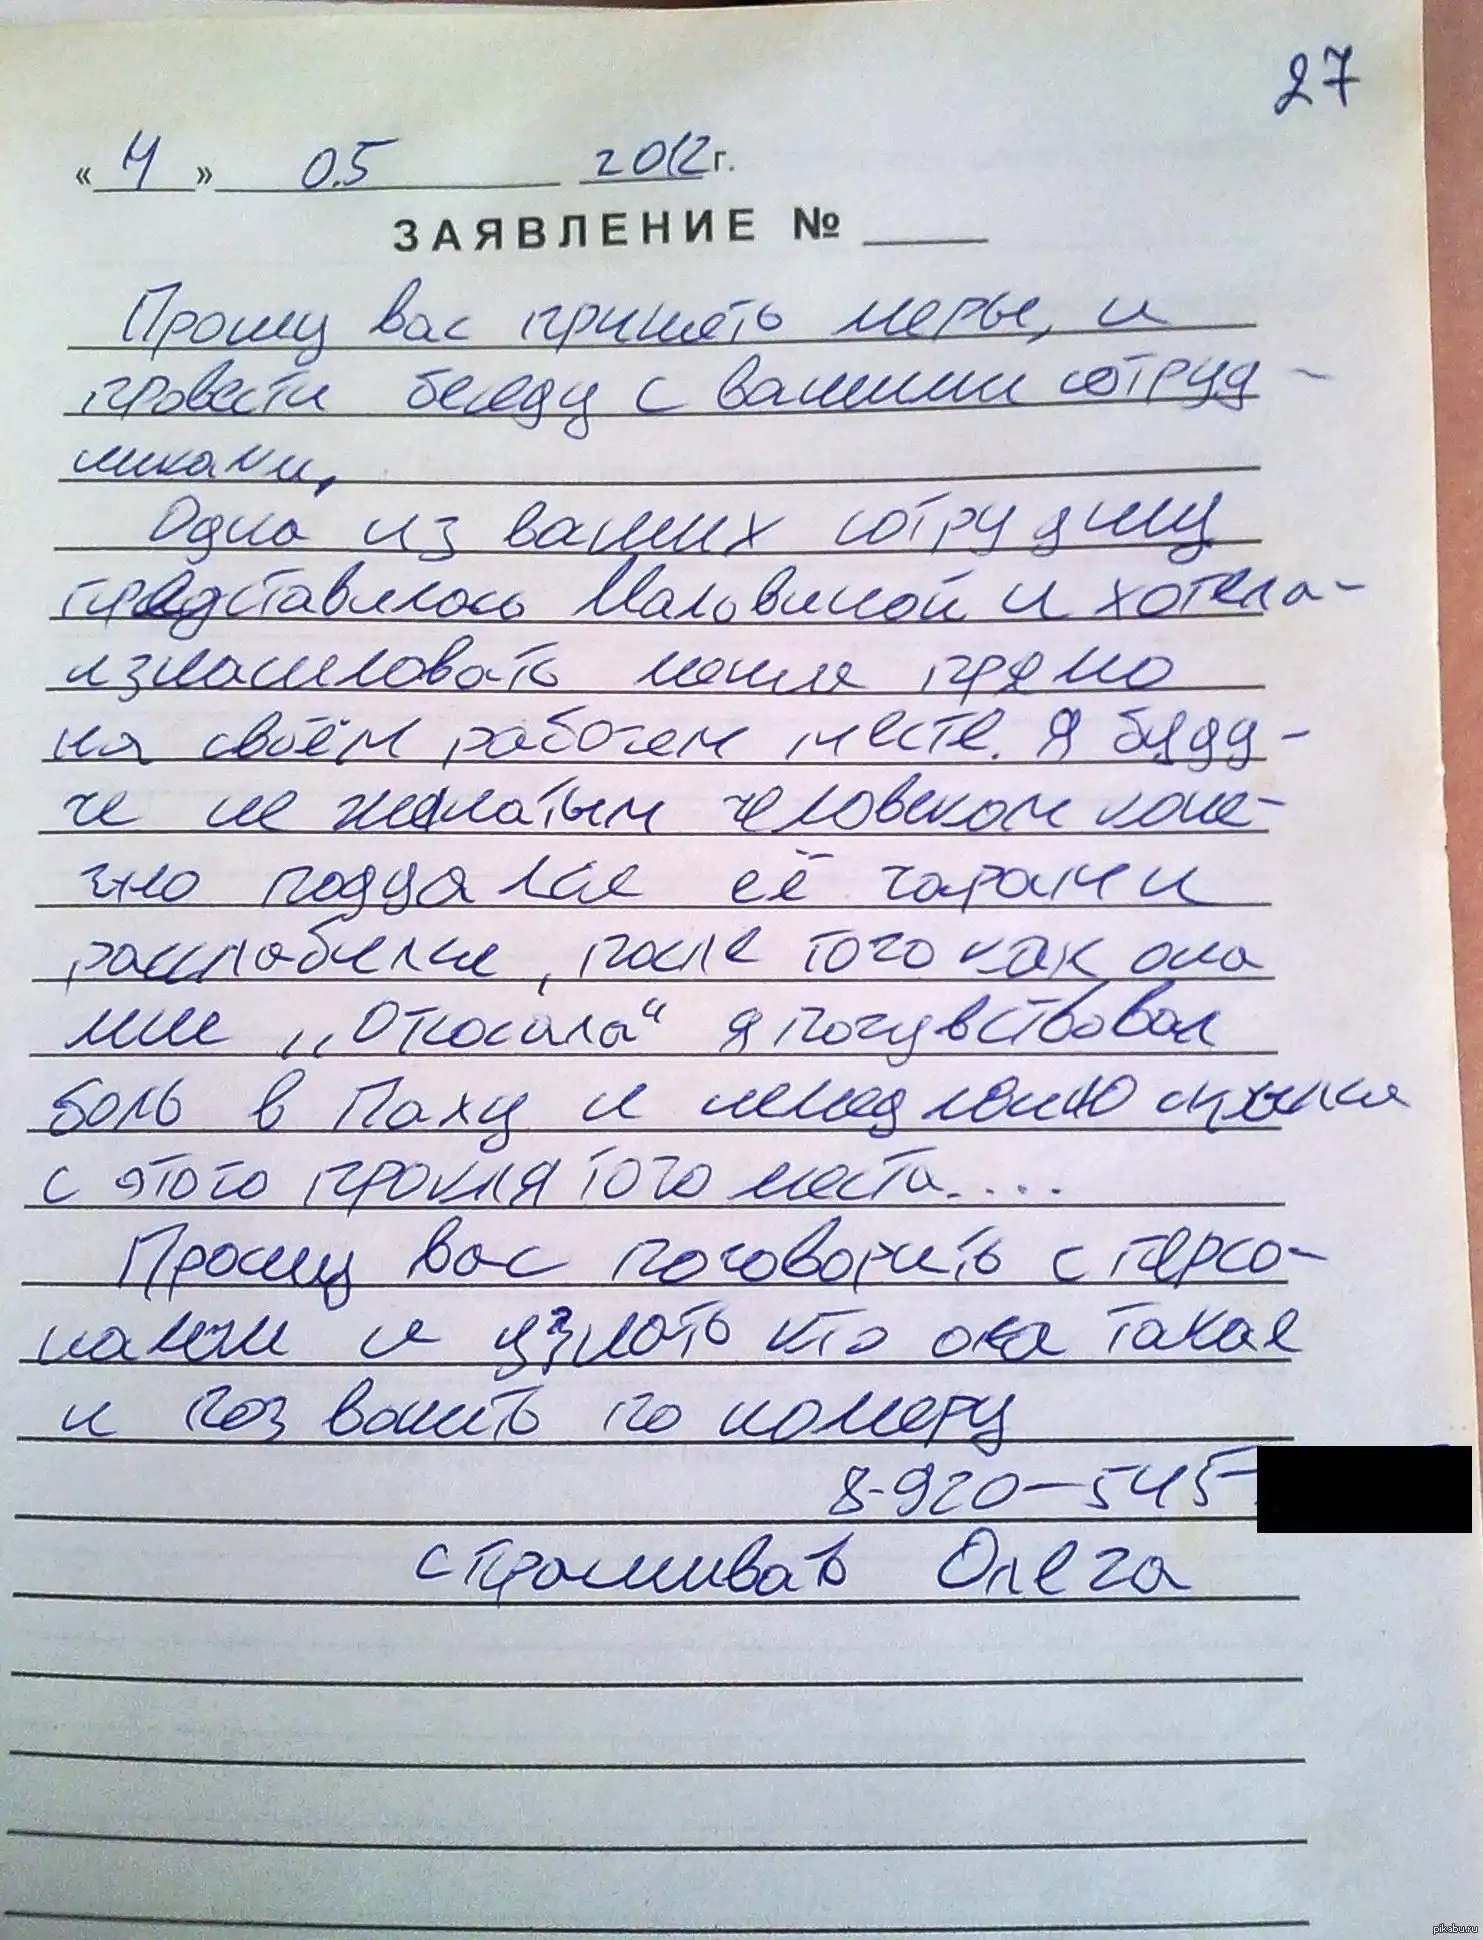 27
« 4 » 05 2012 г.
ЗАЯВЛЕНИЕ № ____
Прошу вас принять меры, и
провести беседу с вашими сотруд-
никами,
Одна из ваших сотрудниц
представилась Мальвиной и хотела-
изнасиловать меня прямо
на своём рабочем месте. Я буду-
чи не женатым человеком коне-
чно поддался её чарам и
расслабился, после того как она
мне ,,Откосала“ я почувствовал
боль в Паху и немедленно скрылся
с этого проклятого места....
Прошу вас поговорить с персо-
налом и узнать кто она такая
и позвонить по номеру
8-920-545-
спрашивать Олега
pikabu.ru